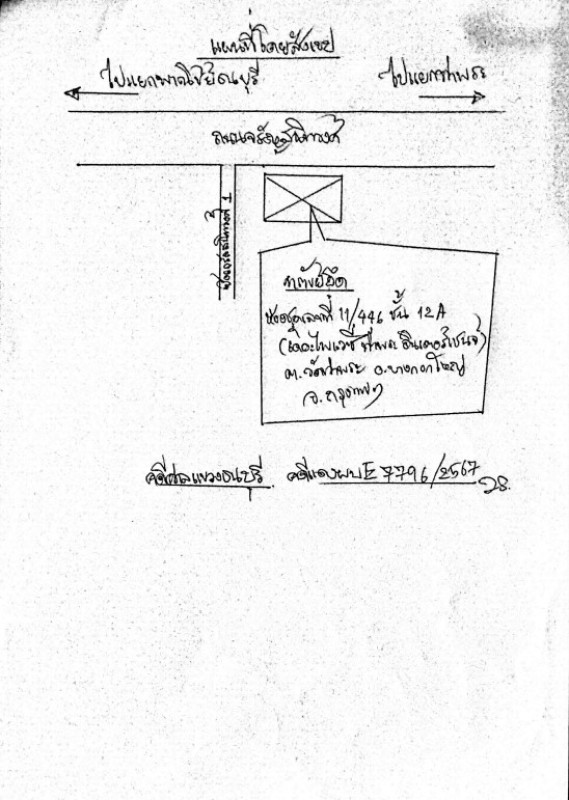 แผนที่โดยสังเขป
ไปแยกพาณิชย์ธนบุรี
ไปแยกท่าพระ
ถนนจรัญสนิทวงศ์
ซอยจรัลสนิทวงศ์ 1
ทรัพย์ยึด
ห้องชุดเลขที่ 11/446 ชั้น 12A
(เดอะไพรเวซี่ ท่าพระ อินเตอร์เชนจ์)
ต.วัดท่าพระ อ.บางกอกใหญ่
จ.กรุงเทพฯ
คดีศาลแขวงธนบุรี คดีแดงผบE 7796/2567